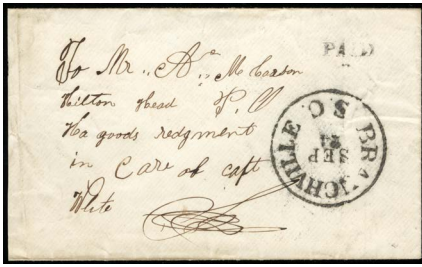 PAID
To Mr. "A" McCarson
Hilton Head
Hagoods redgment
in Care of capt
White
BRANCHVILLE S.C
SEP